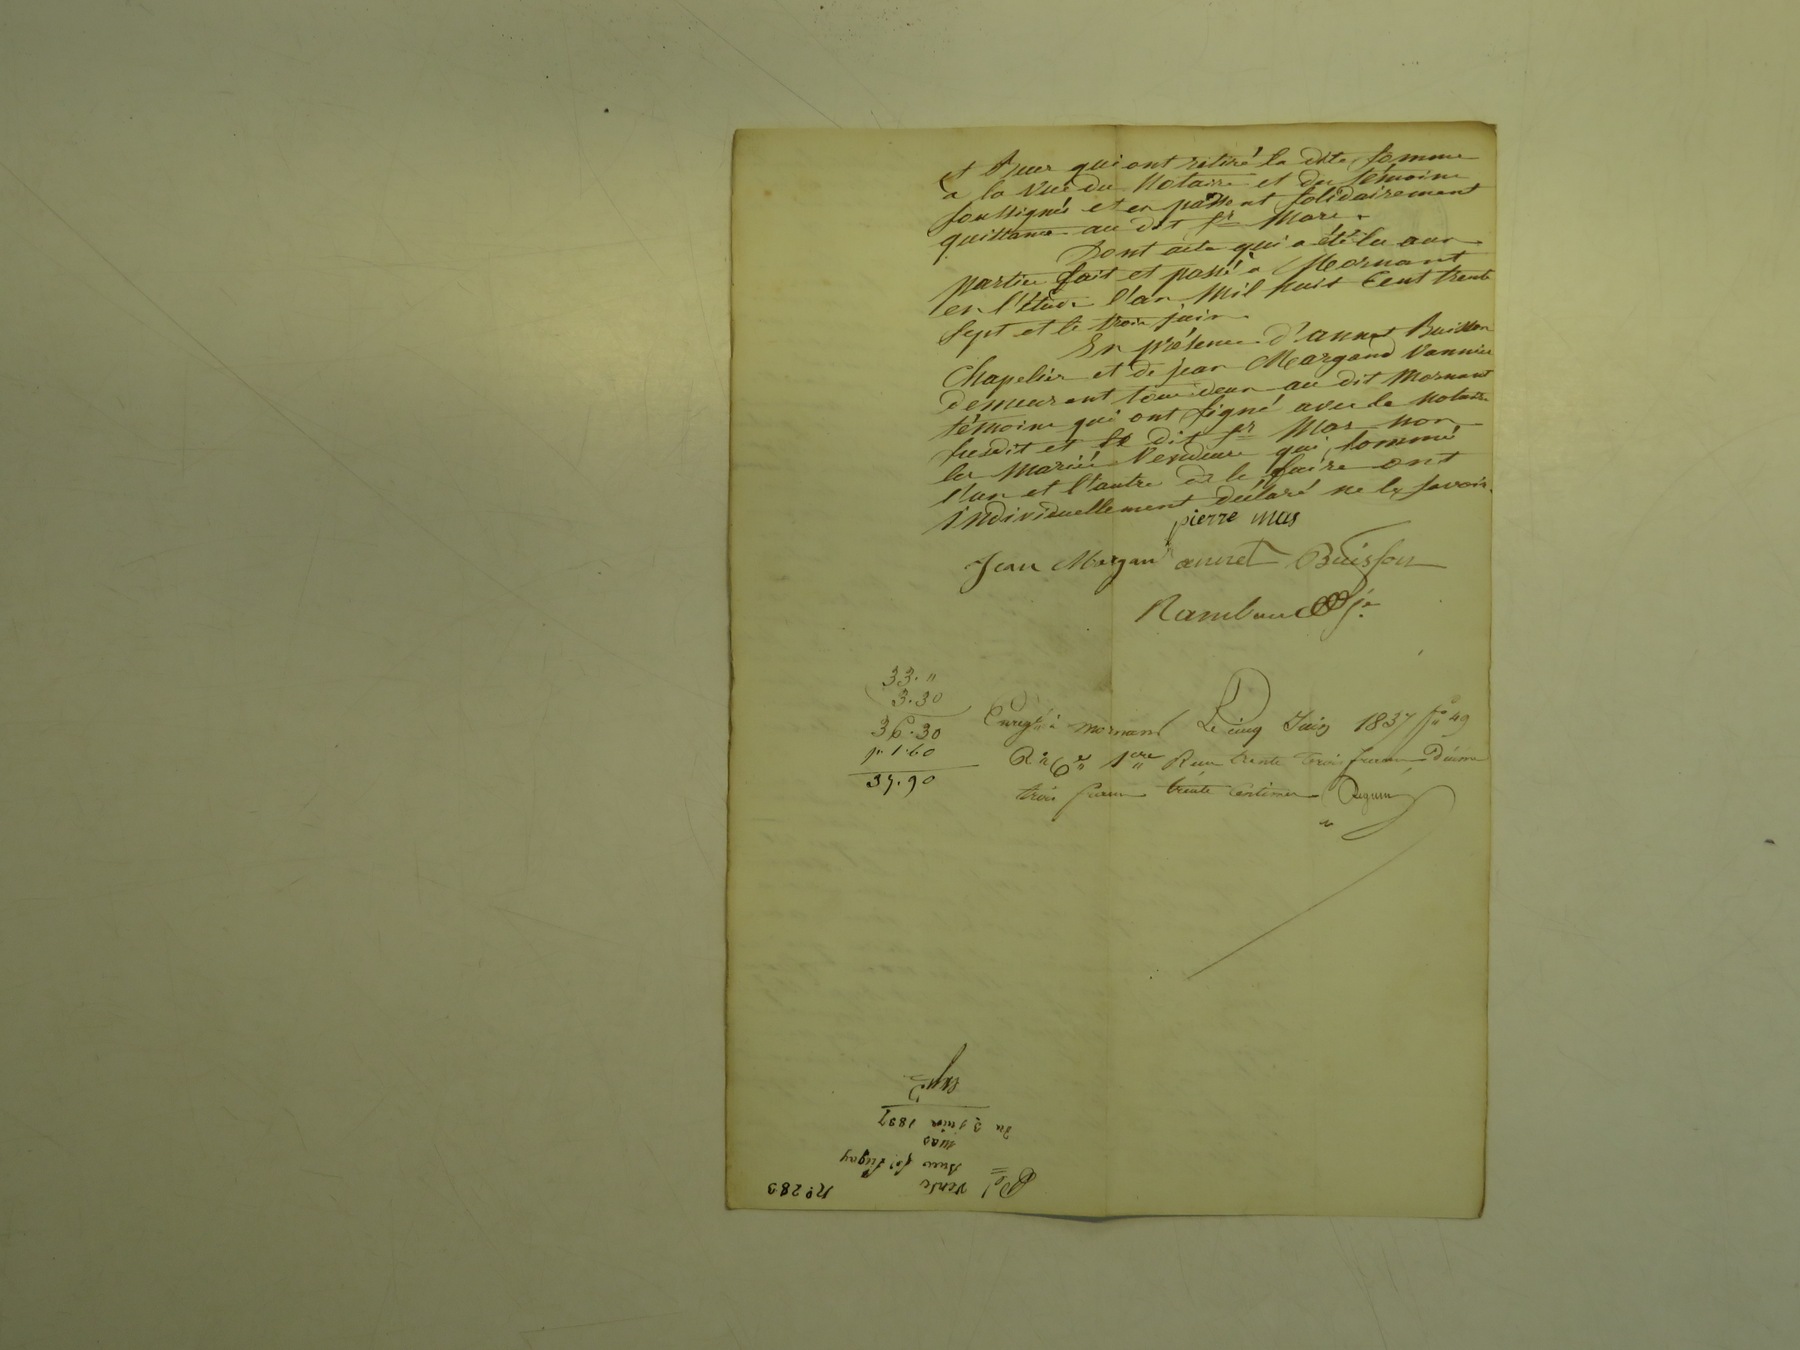 qui ont retiré la dite somme
a la vue du Notaire et des témoins
soussignés et en passent solidairement
quittance au dit Sr Mas.
Dont acte qui a été lu aux
parties fait et passé a Mornant
en l'étude l'an Mil huit Cent trente
sept et le trois juin.
En présence d'annet Buisson
Chapelier et de jean Margand Vannier
demeurant tous deux au dit Mornant
témoins qui ont signé avec le notaire
susdit et le dit Sr Mas non
les mariés Vendeurs qui, sommé
l'un et l'autre de le faire ont
individuellement déclaré ne le savoir.
pierre mas
Jean Margand annet Buisson
33. "
3.30
36.30
1.60
37.90
Enregté à mornant Le cinq Juin 1837 fo 49
Ro Ce 1ere Reçu trente trois francs Décime
trois francs trente centimes
No 283
Vente
mas
du 3 juin 1837